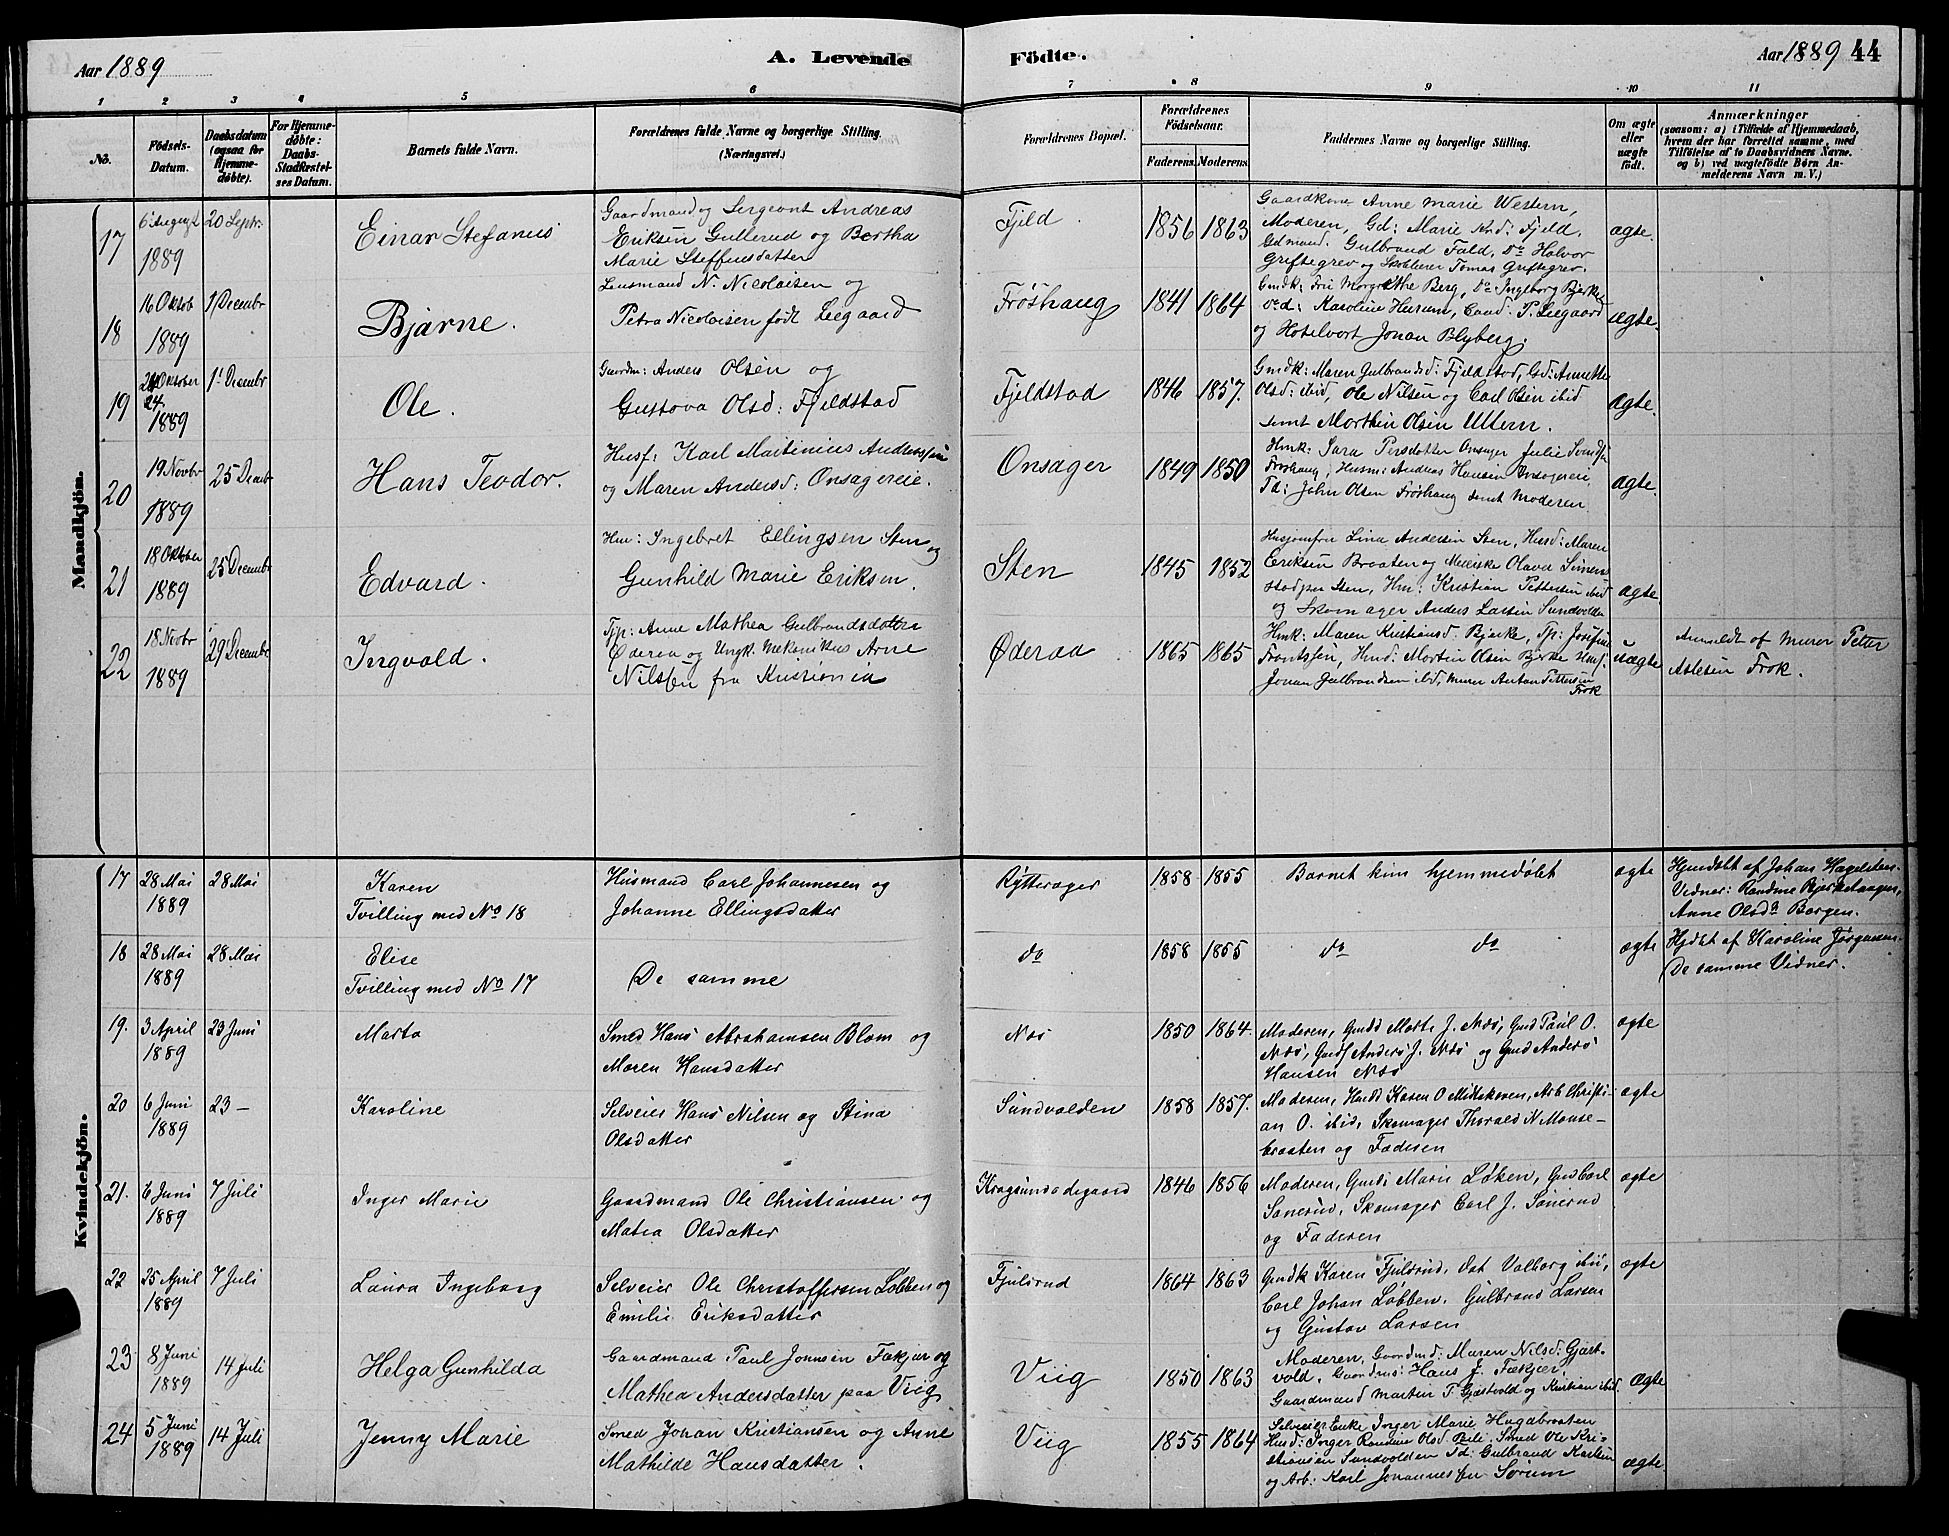 Aar 1889
A. Levende Födte.
Aar 1889 44
1 2 3 4 5 6 7 8 9 10 11
No.
Födsels-Datum.
Daabsdatum (ogsaa for Hjemme-döbte).
For Hjemme-döbte: Daabs-Stadfæstel-ses Datum.
Barnets fulde Navn.
Forældrenes fulde Navne og borgerlige Stilling. (Næringsvei.)
Forældrenes Bopæl.
Forældrenes Födselsaar.
Faderens. Moderens.
Faddernes Navne og borgerlige Stilling.
Om ægte eller uægte födt.
Anmærkninger
(saasom: a) i Tilfælde af Hjemmedaab, hvem der har forrettet samme, med Tilföielse af to Daabsvidners Navne, og b) ved uægtefödte Börn Anmelderens Navn m. V.)
Mandkjön.
17 6te August 1889 20 Septr. Einar Stefanus
Gaardmand og Sergeant Andreas
Eriksen Gullerud og Bertha
Marie Steffensdatter
Fjeld 1856 1863
Gaardkone Anne Marie Western,
Moderen, Gd: Marie Krd: Fjeld,
Gdmand. Gulbrand Fald, Do Halvor
Griftegrev og Skolelærer Tomas Griftegrev.
ægte.
18 16 Oktob 1889 1 Decembr Bjarne.
Lensmand N. Nicolaisen og
Petra Nicolaisen født Leegaard
Frøshaug 1841 1864
Gmdk: Fru Morgrethe Berg, Do Ingeborg Bjerke
Karoline Hurum, Cand. P. Leegaard
og Hotelvært Johan Blyberg.
ægte.
19 Oktober 24. 1889 1' Decembr Ole.
Gaardm: Anders Olsen og
Gustava Olsd: Fjeldstad
Fjeldstad 1846 1857.
Gmdk: Maren Gulbrandsd: Fjeldstad, Gd: Annette
Olsd: ibid, Ole Nilsen og Carl Olsen ibid
samt Morthin Olsen Ultern.
ægte.
20 19 Novbr 1889 25 Decbr Hans Teodor.
Husf: Karl Martinius Anderssen
og Maren Andersd: Onsagereie.
Onsager 1849 1850
Hmk: Sara Persdatter Onsager Julie Svendsen
Frøshaug, Husm: Andreas Hansen Onsagereie,
Td: John Olsen Frøshaug samt Moderen
ægte.
21 18 Oktober 1889 25 Decembr Edvard.
Hm: Ingebret Ellingsen Sten og
Gunhild Marie Eriksen.
Sten 1845 1852
Husjomfru Lina Andersen Sten, Husd: Maren
Eriksen Braaten og Meierske Olava Simens
Sten, Hm: Kristian Pettersen ibid
og Skomager Anders Larsen Sundvolden
ægte.
22 18 Novbr 1889 29 Decembr Ingvald.
Tjp: Anne Mathea Gulbrandsdatter
Øderaa og Ungk. Mekanikus Arne
Nilssen fra Kristiania
Øderaa 1865 1865
Hmk: Maren Kristiansd. Bjerke, Tp: Josefine
Frantssen, Hmd: Martin Olsen Bjerke Husf.
Johan Gulbrandsen ibd, murer Anton Pettersen
Frok
uægte
Anmeldt af murer Petter
Atlesen Frok.
Kvindekjön.
17 28 Mai 1889 28 Mai Karen
Tvilling med No 18
Husmand Carl Johannesen og
Johanne Ellingsdatter
Rytterager 1858 1855
Barnet kun hjemmedøbt
ægte
Hjemdøbt af Johan Hagelsten.
Vidner: Randine Bjerkehaugen,
Anne Olsdn Borgen.
18 28 Mai 1889 28 Mai Elise
Tvilling med No 17
De samme
do 1858 1855 do do ægte
Hjdbt af Karoline Jørgensen.
De samme Vidner.
19. 3 April 1889 23 Juni Marta
Smed Hans Abrahamsen Blom og
Maren Hansdatter
Næs 1850 1864.
Moderen, Gmdd Marte J. Næs, Gmd Paul O.
Næs, Gmdf Anders J. Næs og Gmd Anders
Hansen Næs
ægte
20 6 Juni 1889 23 — Karoline
Selveier Hans Nilsen og Stina
Olsdatter
Sundvolden 1858 1857.
Moderen, Husdd Karen O Midtskoven, Arb Christi-
an O. ibid, Skomager Thorvald N Monse-
braaten og Faderen
ægte
21. 6 Juni 1889 7 Juli Inger Marie
Gaardmand Ole Christiansen og
Matea Olsdatter
Krogsundødegaard 1846 1856
Moderen, Gmds Marie Løken, Gmd Carl
Sønerud, Skomager Carl J. Sønerud
og Faderen
ægte
22 25 April 1889 7 Juli Laura Ingeborg
Selveier Ole Christoffersen Løbben og
Emilie Eriksdatter
Fjulsrud 1864 1863
Gmdk Karen Fjulsrud, dat Valborg ibid,
Carl Johan Løbben, Gulbrand Larsen
og Gustav Larsen
ægte
23 8 Juni 1889 14 Juli Helga Gunhilda
Gaardmand Paul Johnsen Fækjær og
Mathea Andersdatter paa Viig
Viig 1850 1863
Moderen, Gaardmd: Maren Nilsd: Gjæst-
vold, Gaardms: Hans J. Fækjær,
Gaardmand Martin P. Gjæstvold og Kristian ibid.
ægte
24 5 Juni 1889 14 Juli Jenny Marie
Smed Johan Kristiansen og Anne
Mathilde Hansdatter.
Viig 1855 1864
Selveier Enke Inger Marie Hugabraaten
Husd: Inger Randine Olsd Bili, Smed Ole Kri-
stiansen Sundvolden Td: Gulbrand Karlsen
og Arb: Karl Johannessen Sørum
ægte.